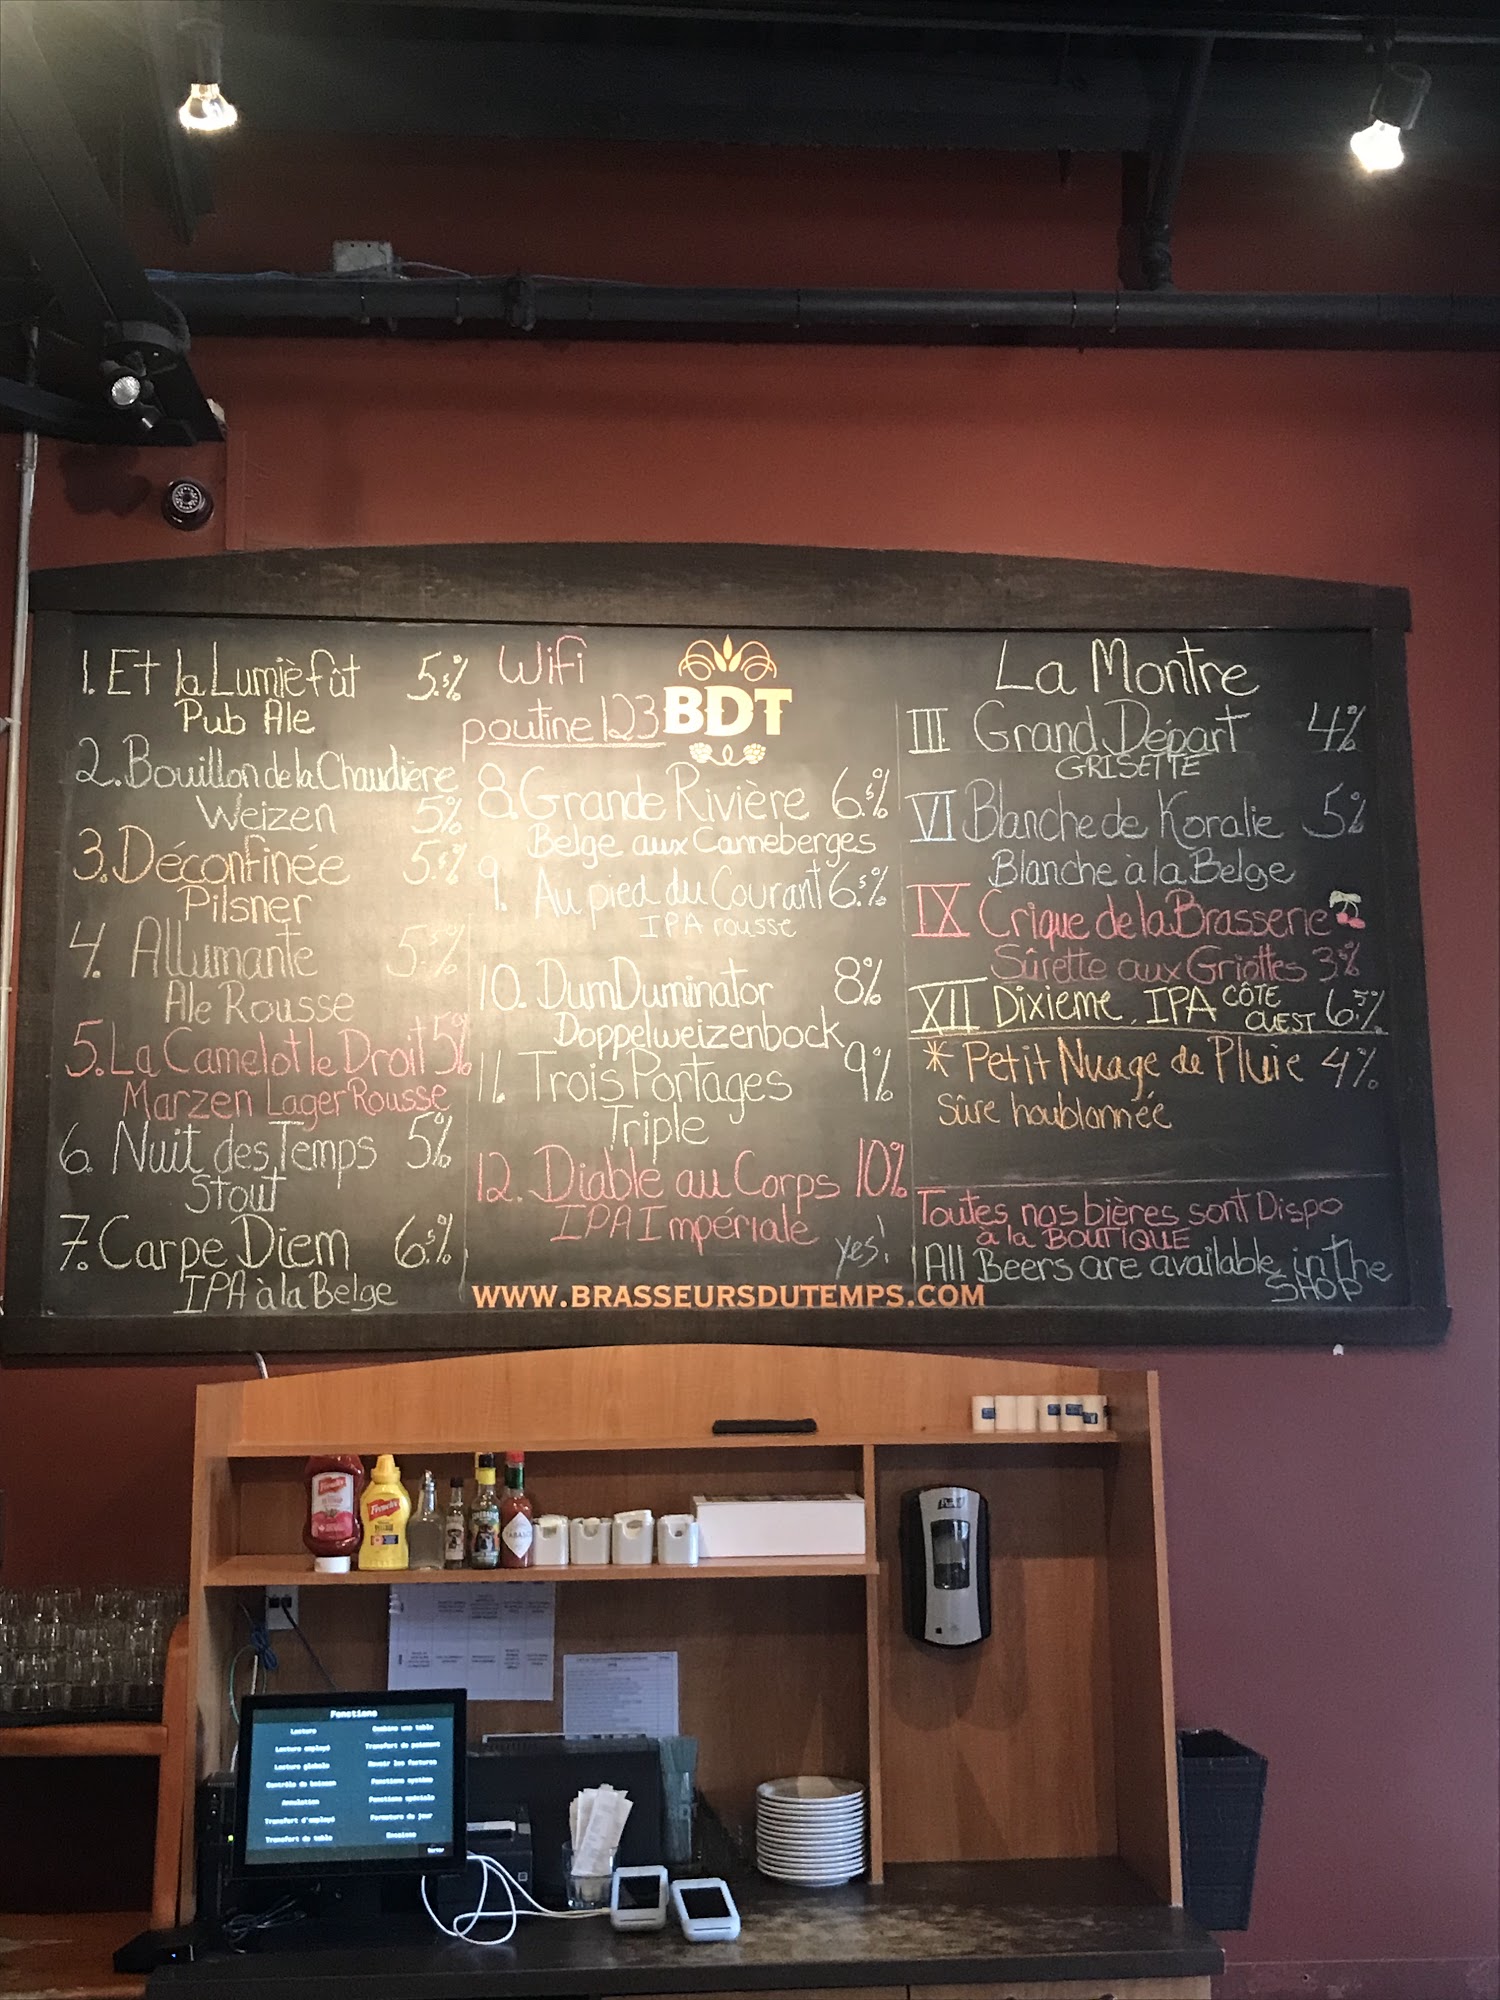 1. Et la Lumièfût 5.5%
Pub Ale
2. Bouillon de la Chaudière
Weizen 5%
3. Déconfinée 5.5%
Pilsner
4. Allumante 5.5%
Ale Rousse
5. La Camelot le Droit 5%
Marzen Lager Rousse
6. Nuit des Temps 5%
Stout
7. Carpe Diem 6.5%
IPA à la Belge
Wifi
poutine123
BDT
8. Grande Rivière 6.5%
Belge aux Canneberges
9. Au pied du Courant 6.5%
IPA rousse
10. DumDuminator 8%
Doppelweizenbock
11. Trois Portages 9%
Triple
12. Diable au Corps 10%
IPA Impériale
yes!
WWW.BRASSEURSDUTEMPS.COM
La Montre
III Grand Départ 4%
GRISETTE
VI Blanche de Koralie 5%
Blanche à la Belge
IX Crique de la Brasserie
Sûrette aux Griottes 3%
XII Dixieme, IPA CÔTE OUEST 6.5%
* Petit Nuage de Pluie 4%
Sûre houblonnée
Toutes nos bières sont Dispo
à la BOUTIQUE
All Beers are available in the
SHOP
French's
French's
TABASCO
Purell
Fonctions
Lecture
Combine une table
Lecture employé
Transfert de paiement
Lecture globale
Revoir les factures
Contrôle de boisson
Fonctions système
Annulation
Fonctions spéciale
Transfert d'employé
Fermeture du jour
Transfert de table
BDT